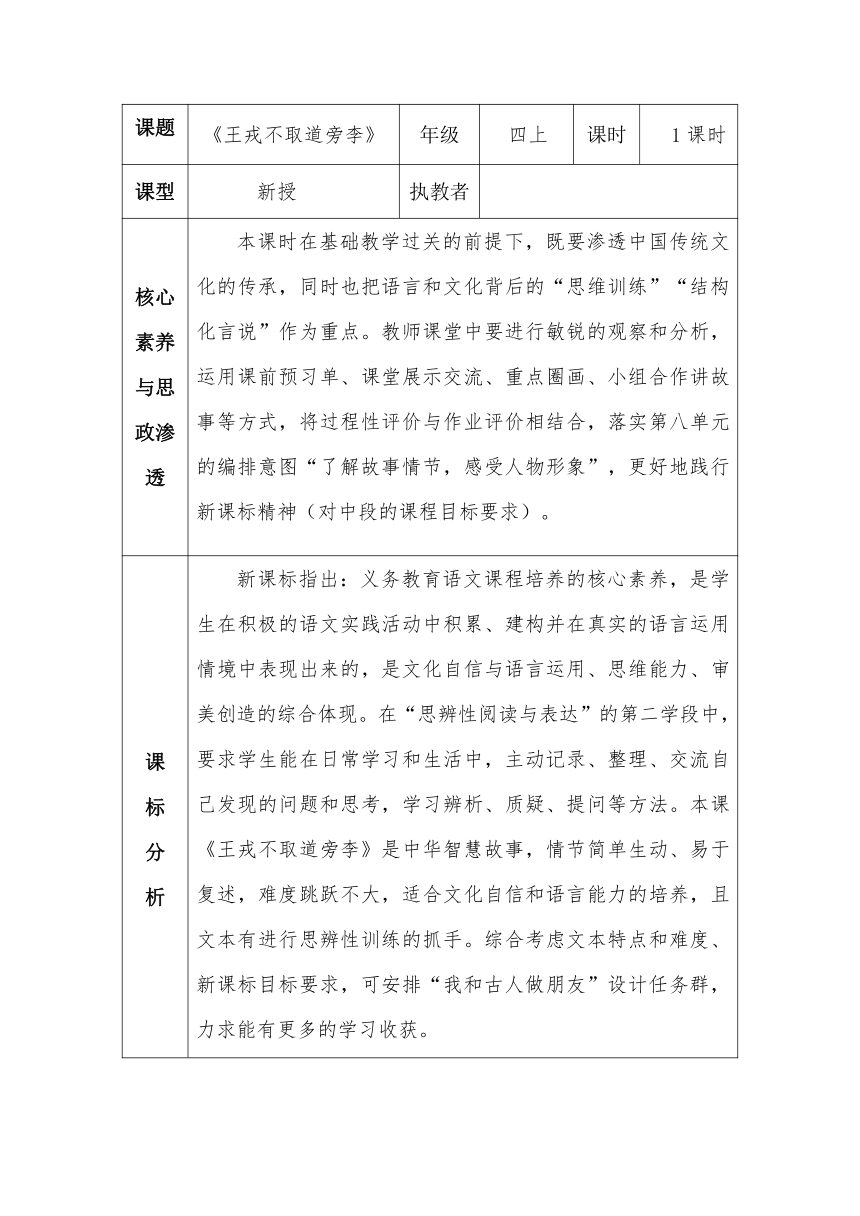 课题 《王戎不取道旁李》 年级 四上 课时 1 课时
课型 新授 执教者
核心
素养
与思
政渗
透
本课时在基础教学过关的前提下，既要渗透中国传统文
化的传承，同时也把语言和文化背后的“思维训练”“结构
化言说”作为重点。教师课堂中要进行敏锐的观察和分析，
运用课前预习单、课堂展示交流、重点圈画、小组合作讲故
事等方式，将过程性评价与作业评价相结合，落实第八单元
的编排意图“了解故事情节，感受人物形象”，更好地践行
新课标精神（对中段的课程目标要求）。
课
标
分
析
新课标指出：义务教育语文课程培养的核心素养，是学
生在积极的语文实践活动中积累、建构并在真实的语言运用
情境中表现出来的，是文化自信与语言运用、思维能力、审
美创造的综合体现。在“思辨性阅读与表达”的第二学段中，
要求学生能在日常学习和生活中，主动记录、整理、交流自
己发现的问题和思考，学习辨析、质疑、提问等方法。本课
《王戎不取道旁李》是中华智慧故事，情节简单生动、易于
复述，难度跳跃不大，适合文化自信和语言能力的培养，且
文本有进行思辨性训练的抓手。综合考虑文本特点和难度、
新课标目标要求，可安排“我和古人做朋友”设计任务群，
力求能有更多的学习收获。